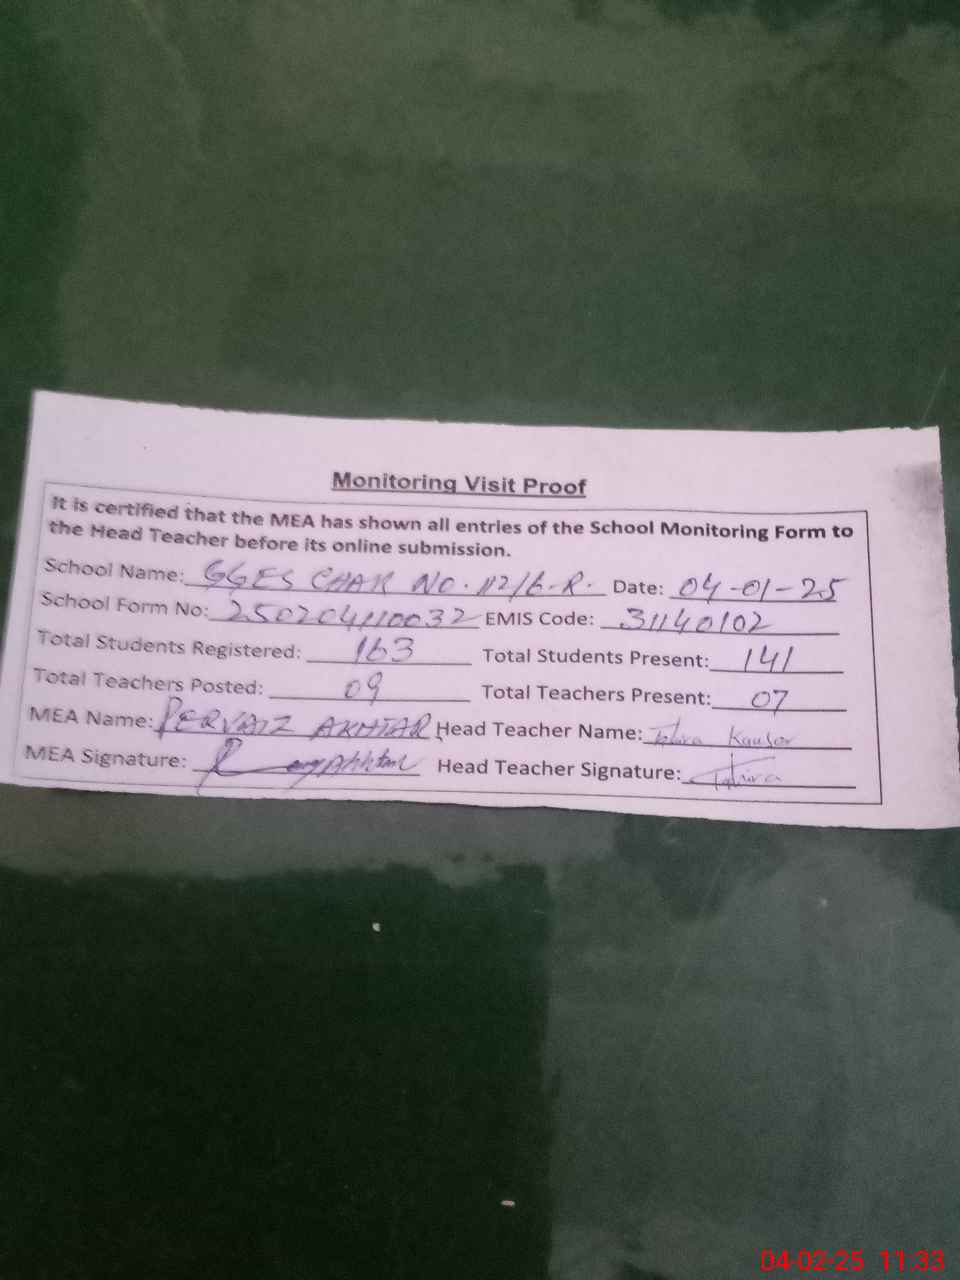 Monitoring Visit Proof
It is certified that the MEA has shown all entries of the School Monitoring Form to
the Head Teacher before its online submission.
School Name: GGES CHAK NO. 112/6-R. Date: 04-01-25
School Form No: 250204110032 EMIS Code: 31140102
Total Students Registered: 163 Total Students Present: 141
Total Teachers Posted: 09 Total Teachers Present: 07
MEA Name: PERVAIZ AKHTAR Head Teacher Name: Tahira Kausor
MEA Signature: Akhtar Head Teacher Signature: Tahira
04-02-25 11:33